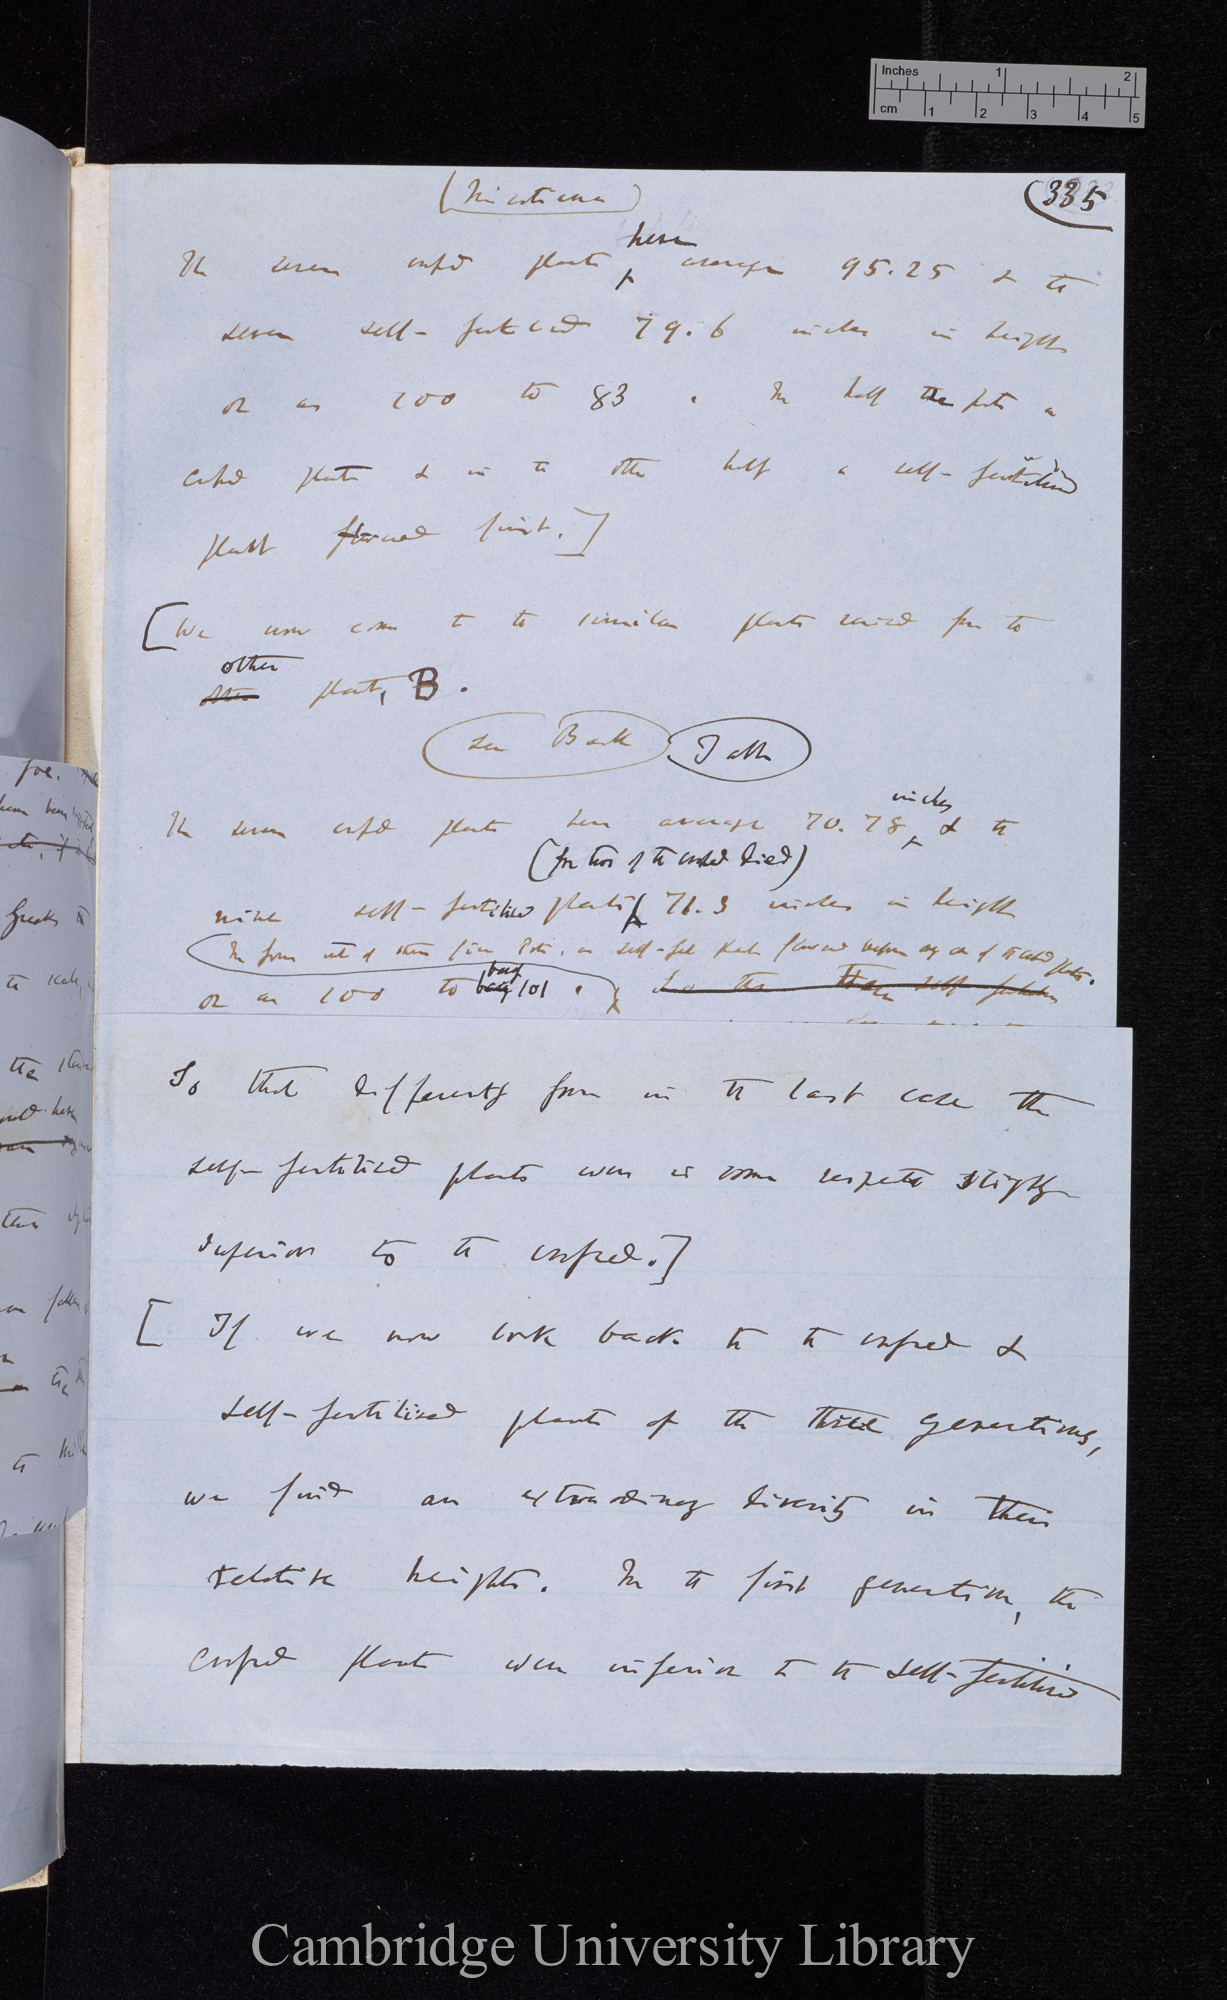 Inches 1 2
cm 1 2 3 4 5
(Nicotiana)
335
here
The seven crossed plants average 95.25 & the
seven self-fertilised 79.6 inches in height
or as 100 to 83. In half the pots a
crossed plant & in the other half a self-fertilised
plant flowered first.]
[We now come to the similar plants raised from the
other
other plant, B.
See Back Table
inches
The seven crossed plants here average 70.78 & the
(for two of the crossed died)
nine self-fertilised plants 71.3 inches in height
In four out of these five Pots, a self-fert plant flowered before any one of the crossed plants.
barely
or as 100 to 101. So the
So that differently from in the last case the
self-fertilised plants were in some respects slightly
superior to the crossed.]
[ If we now look back to the crossed &
self-fertilised plants of the three generations,
we find an extraordinary diversity in their
relative heights. In the first generation, the
crossed plants were inferior to the self-fertilised
Cambridge University Library